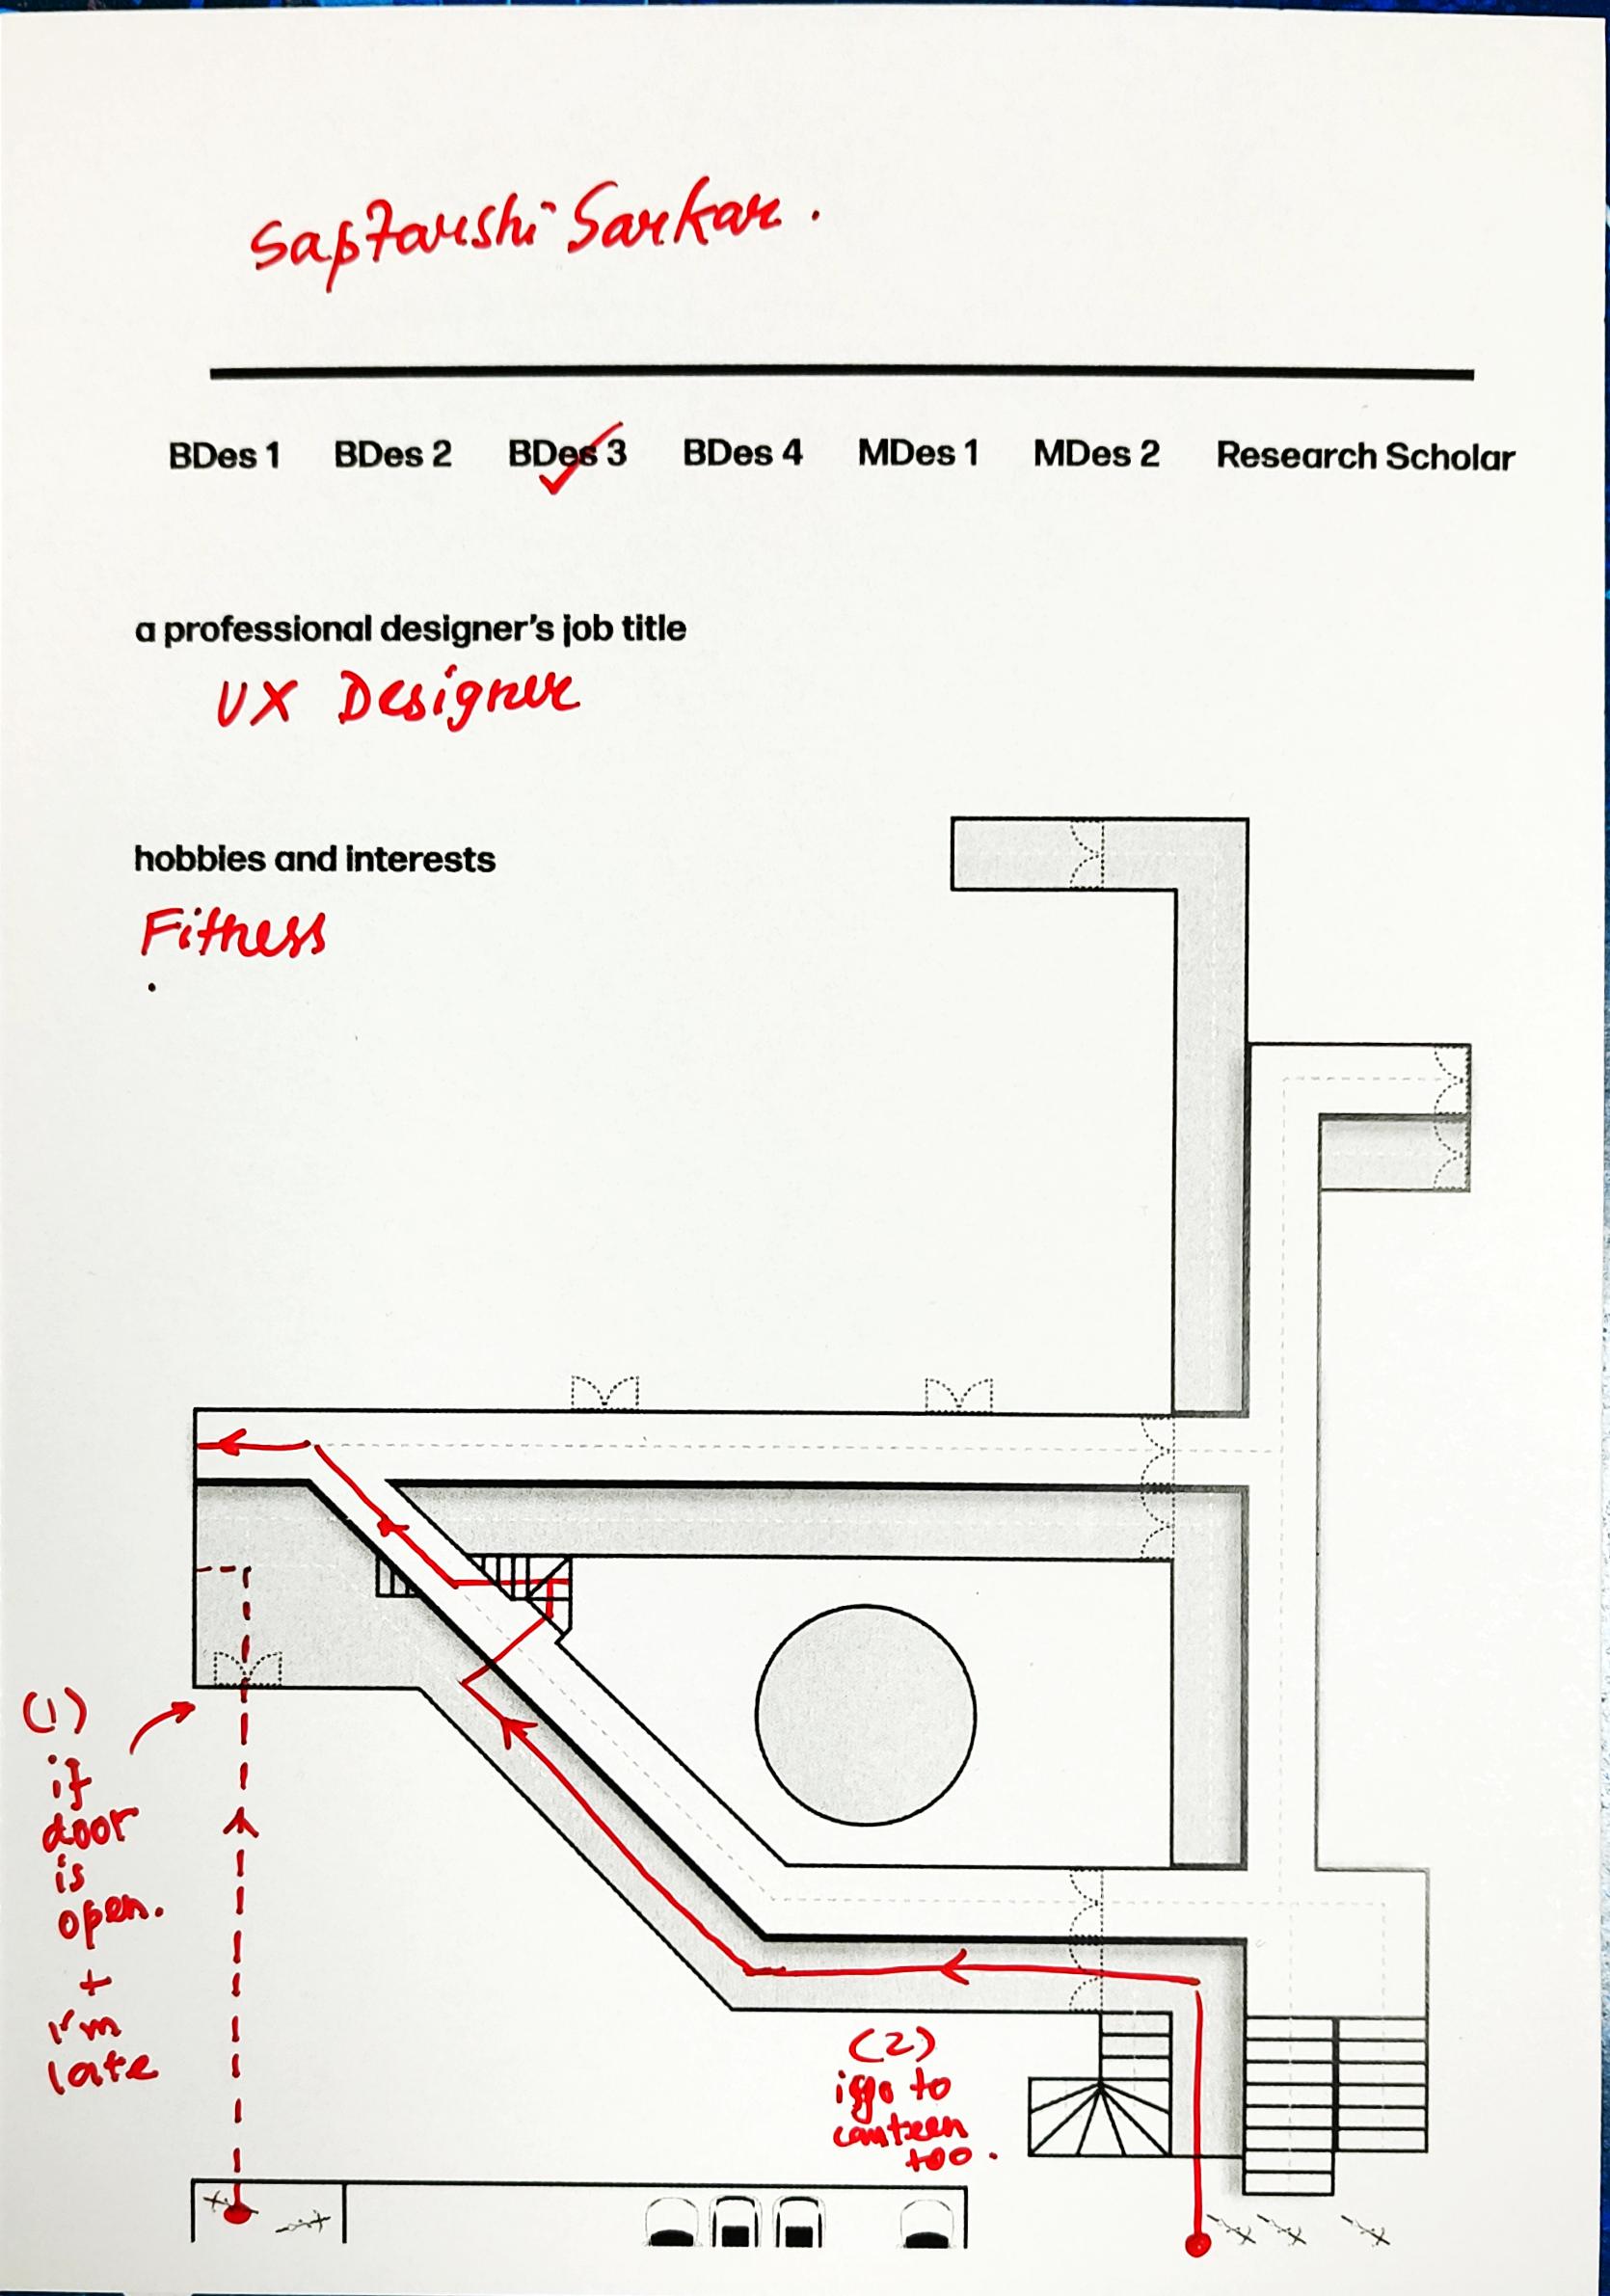 Saptarshi Sarkar.
BDes 1 BDes 2 BDes 3 BDes 4 MDes 1 MDes 2 Research Scholar
a professional designer's job title
UX Designer
hobbies and interests
Fitness
(1)
if
door
is
open.
+
I'm
late
(2)
go to
canteen
too.